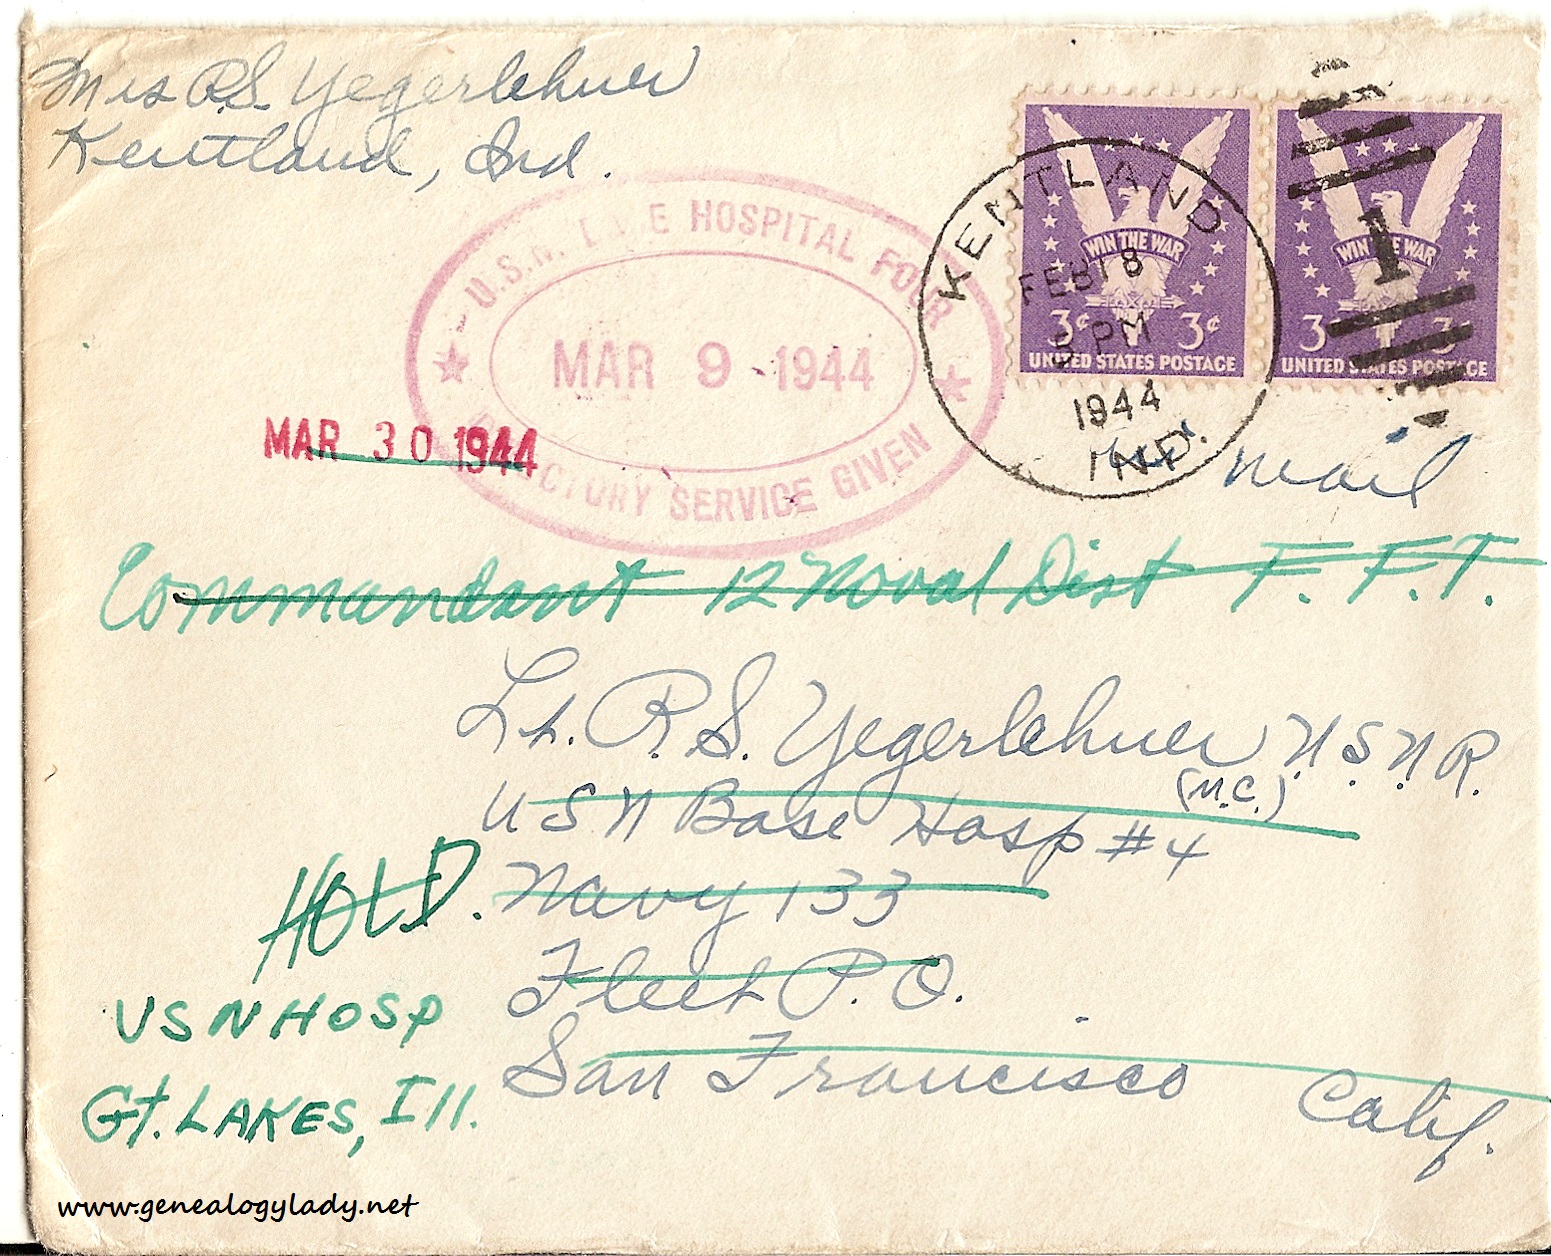 Mrs R.S. Yegerlehner
Kentland, Ind.
U.S.N. HOSPITAL FOUR
MAR 9 1944
DIRECTORY SERVICE GIVEN
MAR 30 1944
KENTLAND
FEB 18
5 PM
1944
IND.
1
WIN THE WAR
3¢ 3¢
UNITED STATES POSTAGE
WIN THE WAR
3¢ 3¢
UNITED STATES POSTAGE
mail
Commandant 12 Naval Dist F.F.T.
Lt. R.S. Yegerlehner U.S.N.R.
(M.C.)
USN Base Hosp #4
Navy 133
Fleet P.O.
San Francisco
Calif.
HOLD.
USN HOSP
Gt. LAKES, Ill.
www.genealogylady.net